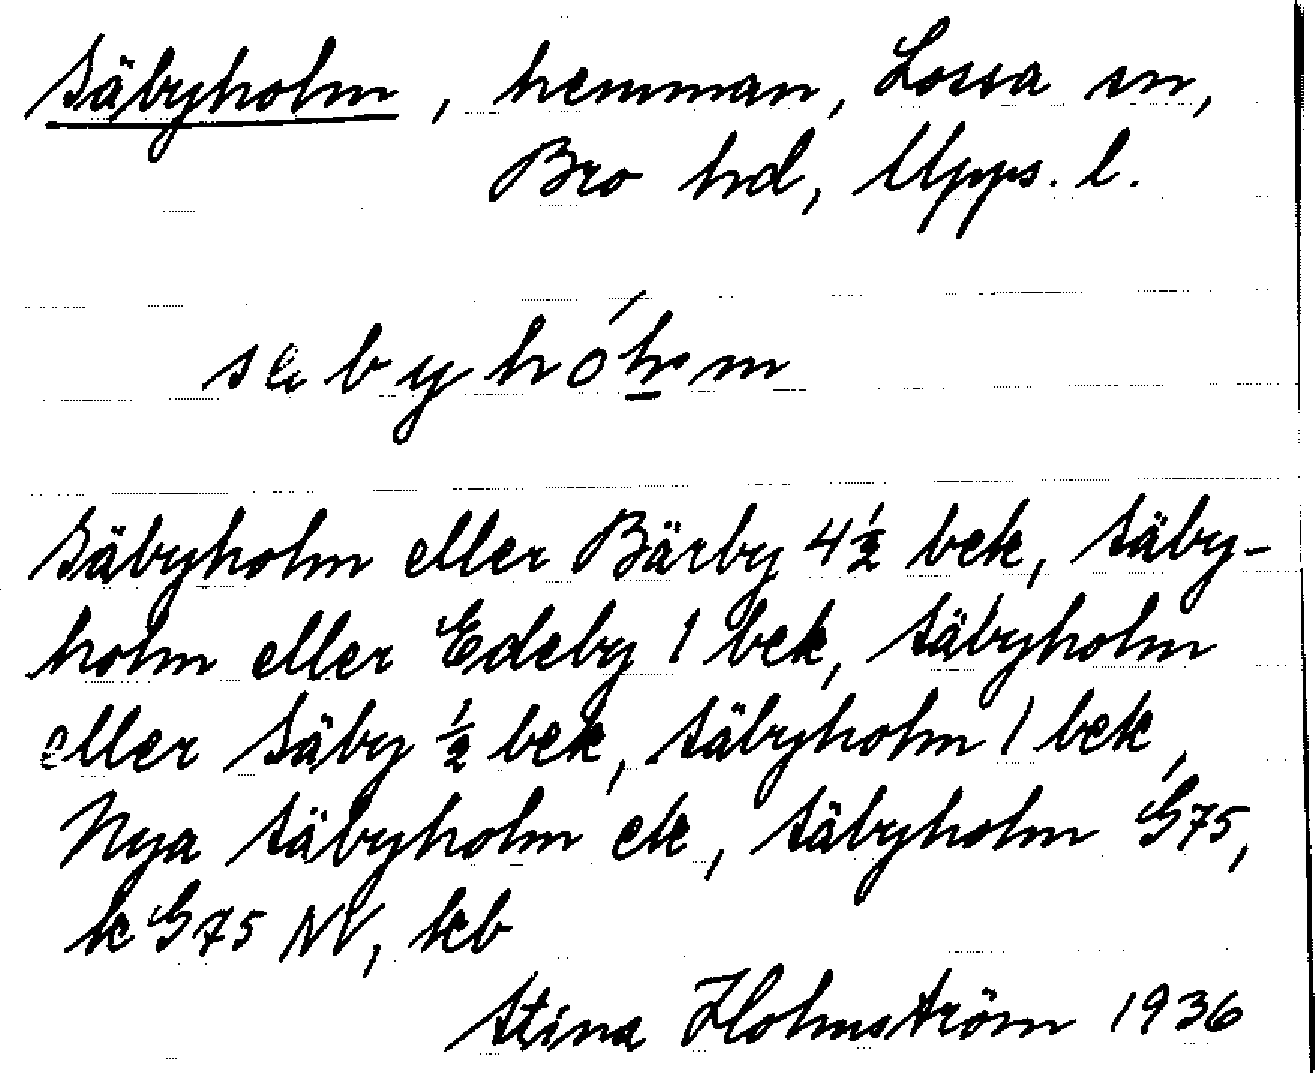 Säbyholm, hemman, Lossa sn,
Bro hd, Upps. l.
Säbyholm eller Bärby 4 1/2 bek, Säby-
holm eller Edeby 1 bek, Säbyholm
eller Säby 1/2 bek, Säbyholm 1 bek,
Nya Säbyholm ek, Säbyholm G75,
k G75 NV, kb
Stina Holmström 1936